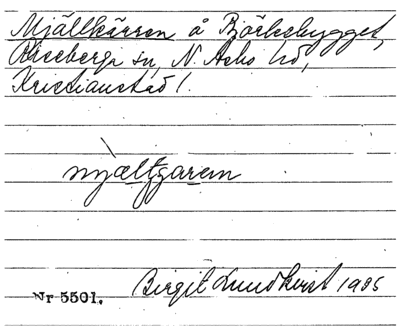 Mjällkärren å Björkebygget,
Riseberga sn, N. Åsbo hd,
Kristianstad l.
mjæltjaren
Nr 5501.
Birgit Lundkvist 1935